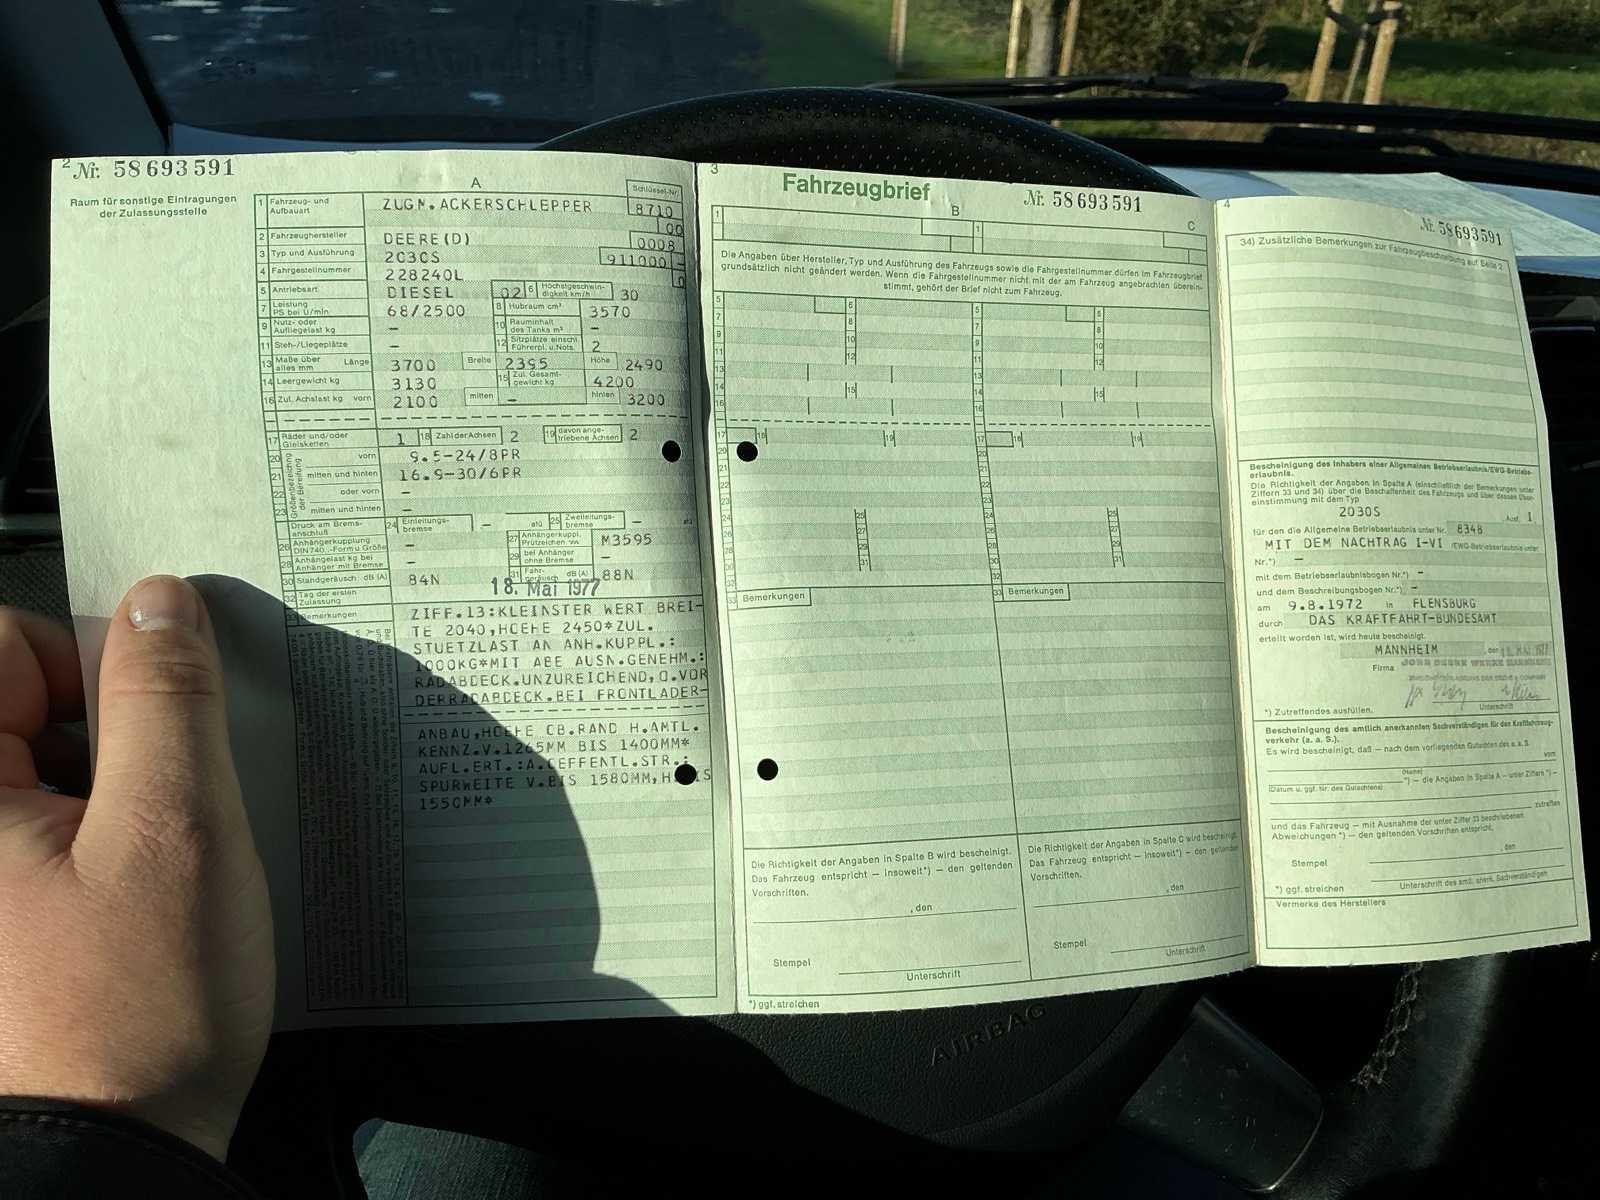 2 Nr. 58693591
Raum für sonstige Eintragungen
der Zulassungsstelle
A
Schlüssel-Nr.
1 Fahrzeug- und Aufbauart ZUGM.ACKERSCHLEPPER 8710
00
2 Fahrzeughersteller DEERE(D) 0008
3 Typ und Ausführung 2030S 911000 -
4 Fahrgestellnummer 228240L 0
5 Antriebsart DIESEL 02 6 Höchstgeschwindigkeit km/h 30
7 Leistung PS bei U/min 68/2500 8 Hubraum cm³ 3570
9 Nutz- oder Aufliegelast kg – 10 Rauminhalt des Tanks m³ –
11 Steh-/Liegeplätze – 12 Sitzplätze einschl. Führerpl. u. Nots. 2
13 Maße über alles mm Länge 3700 Breite 2395 Höhe 2490
14 Leergewicht kg 3130 15 Zul. Gesamtgewicht kg 4200
16 Zul. Achslast kg vorn 2100 mitten – hinten 3200
17 Räder und/oder Gleisketten 1 18 Zahl der Achsen 2 19 davon angetriebene Achsen 2
Größenbezeichnung der Bereifung
20 vorn 9.5-24/8PR
21 mitten und hinten 16.9-30/6PR
22 oder vorn –
23 mitten und hinten –
Druck am Bremsanschluß 24 Einleitungsbremse – atü 25 Zweileitungsbremse – atü
26 Anhängerkupplung DIN 740..-Form u. Größe – 27 Anhängerkuppl. Prüfzeichen M3595
28 Anhängelast kg bei Anhänger mit Bremse – 29 bei Anhänger ohne Bremse –
30 Standgeräusch dB (A) 84N 31 Fahrgeräusch dB (A) 88N
32 Tag der ersten Zulassung 18. Mai 1977
33 Bemerkungen ZIFF.13:KLEINSTER WERT BREI-
TE 2040,HOEHE 2450*ZUL.
STUETZLAST AN ANH.KUPPL.:
1000KG*MIT ABE AUSN.GENEHM.:
RADABDECK.UNZUREICHEND,O.VOR
DERRADABDECK.BEI FRONTLADER-
ANBAU,HOEHE OB.RAND H.AMTL.
KENNZ.V.1265MM BIS 1400MM*
AUFL.ERT.:A.OEFFENTL.STR.:
SPURWEITE V.BIS 1580MM,H. IS
1550MM*
3
Fahrzeugbrief
Nr. 58693591
B
C
1
1
Die Angaben über Hersteller, Typ und Ausführung des Fahrzeugs sowie die Fahrgestellnummer dürfen im Fahrzeugbrief
grundsätzlich nicht geändert werden. Wenn die Fahrgestellnummer nicht mit der am Fahrzeug angebrachten überein-
stimmt, gehört der Brief nicht zum Fahrzeug.
5 6 5 6
7 8 7 8
9 10 9 10
11 12 11 12
13 13
14 15 14 15
16 16
17 18 19 17 18 19
20 20
21 21
22 22
23 23
24 25 24 25
26 27 26 27
28 29 28 29
30 31 30 31
32 32
33 Bemerkungen 33 Bemerkungen
Die Richtigkeit der Angaben in Spalte B wird bescheinigt.
Das Fahrzeug entspricht – insoweit*) – den geltenden
Vorschriften.
, den
Stempel
Unterschrift
*) ggf. streichen
Die Richtigkeit der Angaben in Spalte C wird bescheinigt.
Das Fahrzeug entspricht – insoweit*) – den geltenden
Vorschriften.
, den
Stempel
Unterschrift
4
Nr. 58693591
34) Zusätzliche Bemerkungen zur Fahrzeugbeschreibung auf Seite 2
Bescheinigung des Inhabers einer Allgemeinen Betriebserlaubnis/EWG-Betriebs-
erlaubnis.
Die Richtigkeit der Angaben in Spalte A (einschließlich der Bemerkungen unter
Ziffern 33 und 34) über die Beschaffenheit des Fahrzeugs und über dessen Über-
einstimmung mit dem Typ
2030S , Ausf. 1
für den die Allgemeine Betriebserlaubnis unter Nr. 8348
MIT DEM NACHTRAG I-VI /EWG-Betriebserlaubnis unter
Nr.*) –
mit dem Betriebserlaubnisbogen Nr.*) –
und dem Beschreibungsbogen Nr.*) –
am 9.8.1972 in FLENSBURG
durch DAS KRAFTFAHRT-BUNDESAMT
erteilt worden ist, wird heute bescheinigt.
MANNHEIM , den
Firma JOHN DEERE WERKE MANNHEIM
Unterschrift
*) Zutreffendes ausfüllen.
Bescheinigung des amtlich anerkannten Sachverständigen für den Kraftfahrzeug-
verkehr (a. a. S.).
Es wird bescheinigt, daß – nach dem vorliegenden Gutachten des a. a. S.
vom
(Name)
*) – die Angaben in Spalte A – unter Ziffern *) –
(Datum u. ggf. Nr. des Gutachtens)
zutreffen
und das Fahrzeug – mit Ausnahme der unter Ziffer 33 beschriebenen
Abweichungen *) – den geltenden Vorschriften entspricht.
, den
Stempel
*) ggf. streichen
Unterschrift des amtl. anerk. Sachverständigen
Vermerke des Herstellers
AIRBAG